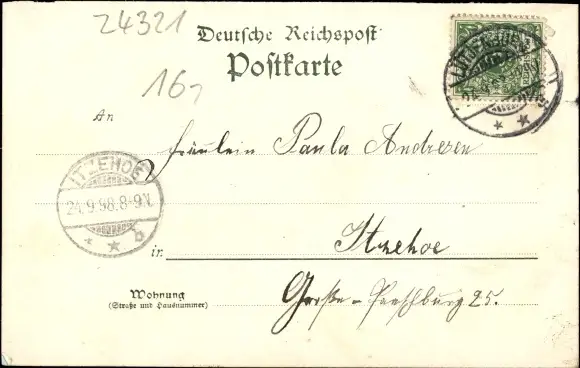 24321
Deutsche Reichspost
Postkarte
16,
An
Fräulein Paula Andresen
ITZEHOE
24.9.98.8-9V.
* * b
in Itzehoe
Wohnung
(Straße und Hausnummer)
Große 25.